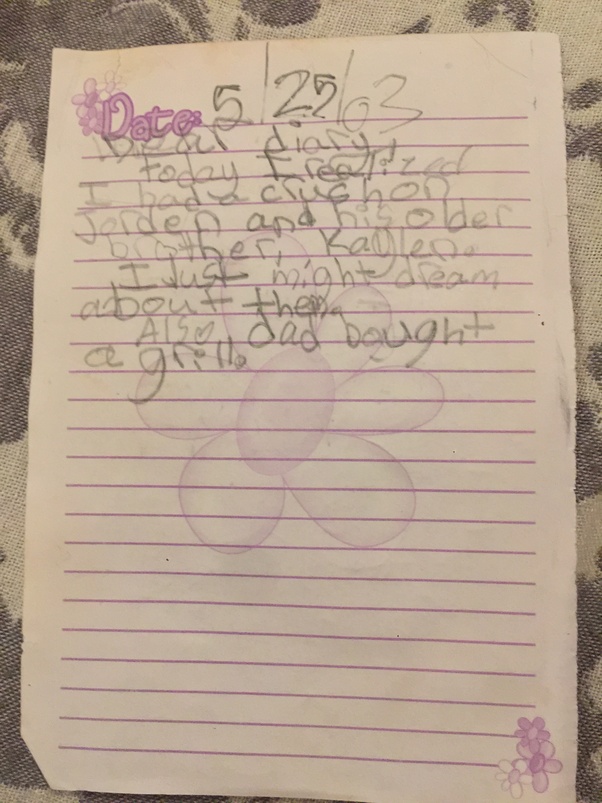 Date: 5/25/03
Dear diary,
today I realized
I had a crush on
Jorden and his older
brother, Kaylen.
I Just might dream
about them.
Also dad bought
a grill.